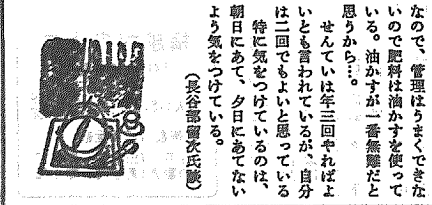 なので、管理はうまくできな
いので肥料は油かすを使って
いる。油かすが一番無難だと
思うから…。
せんていは年三回やればよ
いとも言われているが、自分
は二回でもよいと思っている
特に気をつけているのは、
朝日にあて、夕日にあてない
よう気をつけている。
（長谷部留次氏談）